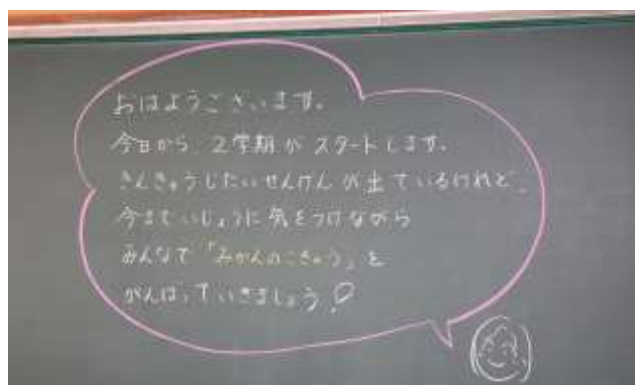 おはようございます。
今日から、2学期がスタートします。
きんきゅうじたいせんげんが出ているけれど、
今までいじょうに気をつけながら
みんなで「みかんのこきゅう」を
がんばっていきましょう!